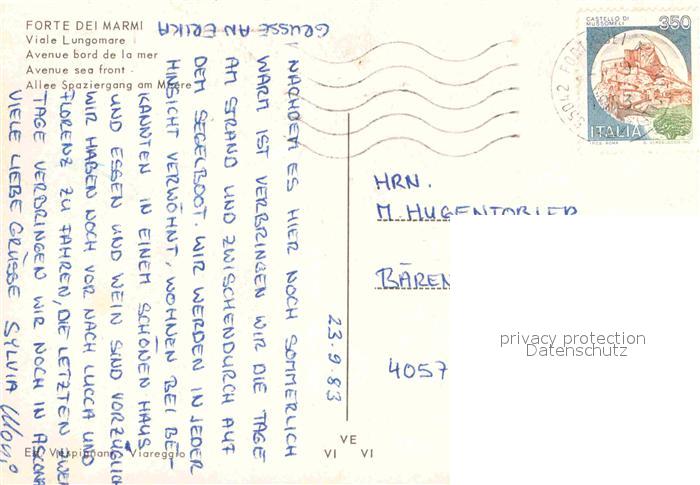 FORTE DEI MARMI
Viale Lungomare
Avenue bord de la mer
Avenue sea front
Allee Spaziergang am Meere
CASTELLO DI
MUSSOMELI
350
ITALIA
23.9.83
NACHDEM ES HIER NOCH SOMMERLICH
WARM IST VERBRINGEN WIR DIE TAGE
AM STRAND UND ZWISCHENDURCH AUF
DEM SEGELBOOT. WIR WERDEN IN JEDER
HINSICHT VERWÖHNT, WOHNEN BEI BE-
KANNTEN IN EINEM SCHÖNEN HAUS
UND ESSEN UND WEIN SIND VORZÜGLICH
WIR HABEN NOCH VOR NACH LUCCA UND
FLORENZ ZU FAHREN, DIE LETZTEN ZWEI
TAGE VERBRINGEN WIR NOCH IN ASCONA
VIELE LIEBE GRÜSSE SYLVIA
GRÜSSE AN ERIKA
HRN.
M. HUGENTOBLER
BÄREN
4057
privacy protection
Datenschutz
Viareggio
VE
VI VI